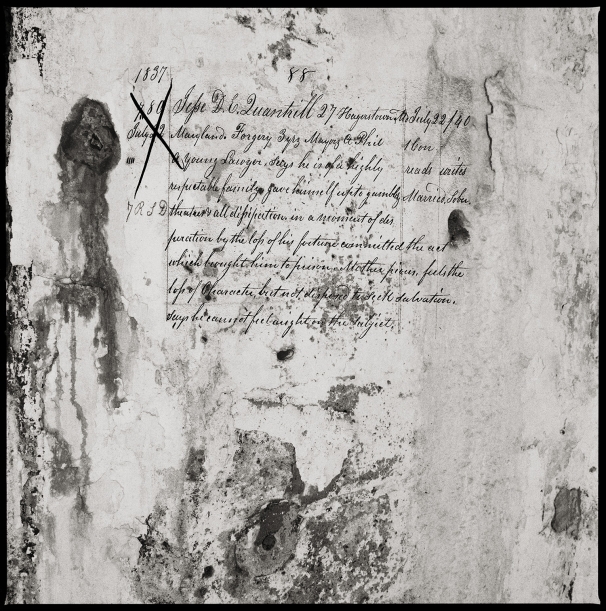 1837 88
Jesse D. E. Quantrill 27 Hagerstown Md July 22/40
July 22 Maryland. Forgery 3 yrs Mayors Ct Phil 1 Con
A young Lawyer, says he is of a highly reads writes
respectable family, gave himself up to gambly Married, Sober
7 R S D & all dissipation, in a moment of des
peration by the loss of his fortune committed the act
which brought him to prison. Mother pious, feels the
loss of Character, but not disposed to seek salvation.
says he cannot feel aught on the subject.